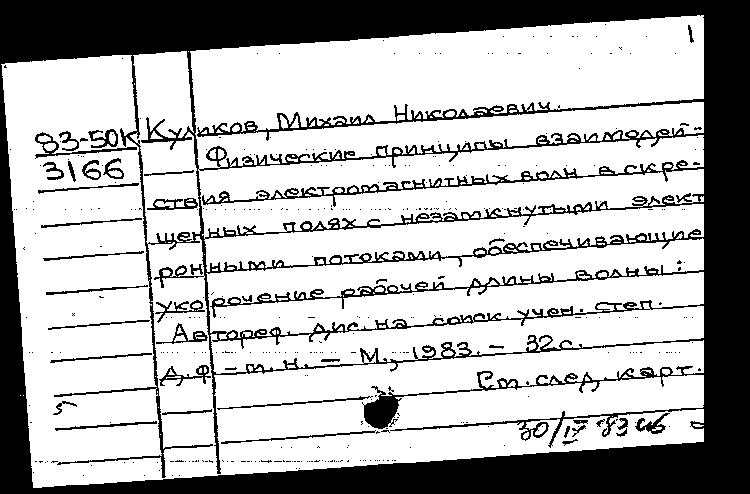 1
83-50К Куликов, Михаил Николаевич.
3166 Физические принципы взаимодей-
ствия электромагнитных волн в скре-
щенных полях с незамкнутыми элект
ронными потоками, обеспечивающие
укорочение рабочей длины волны:
Автореф. дис. на соиск. учен. степ.
д. ф.-м. н. - М., 1983. - 32 с.
См. след. карт.
5
30/IV 83